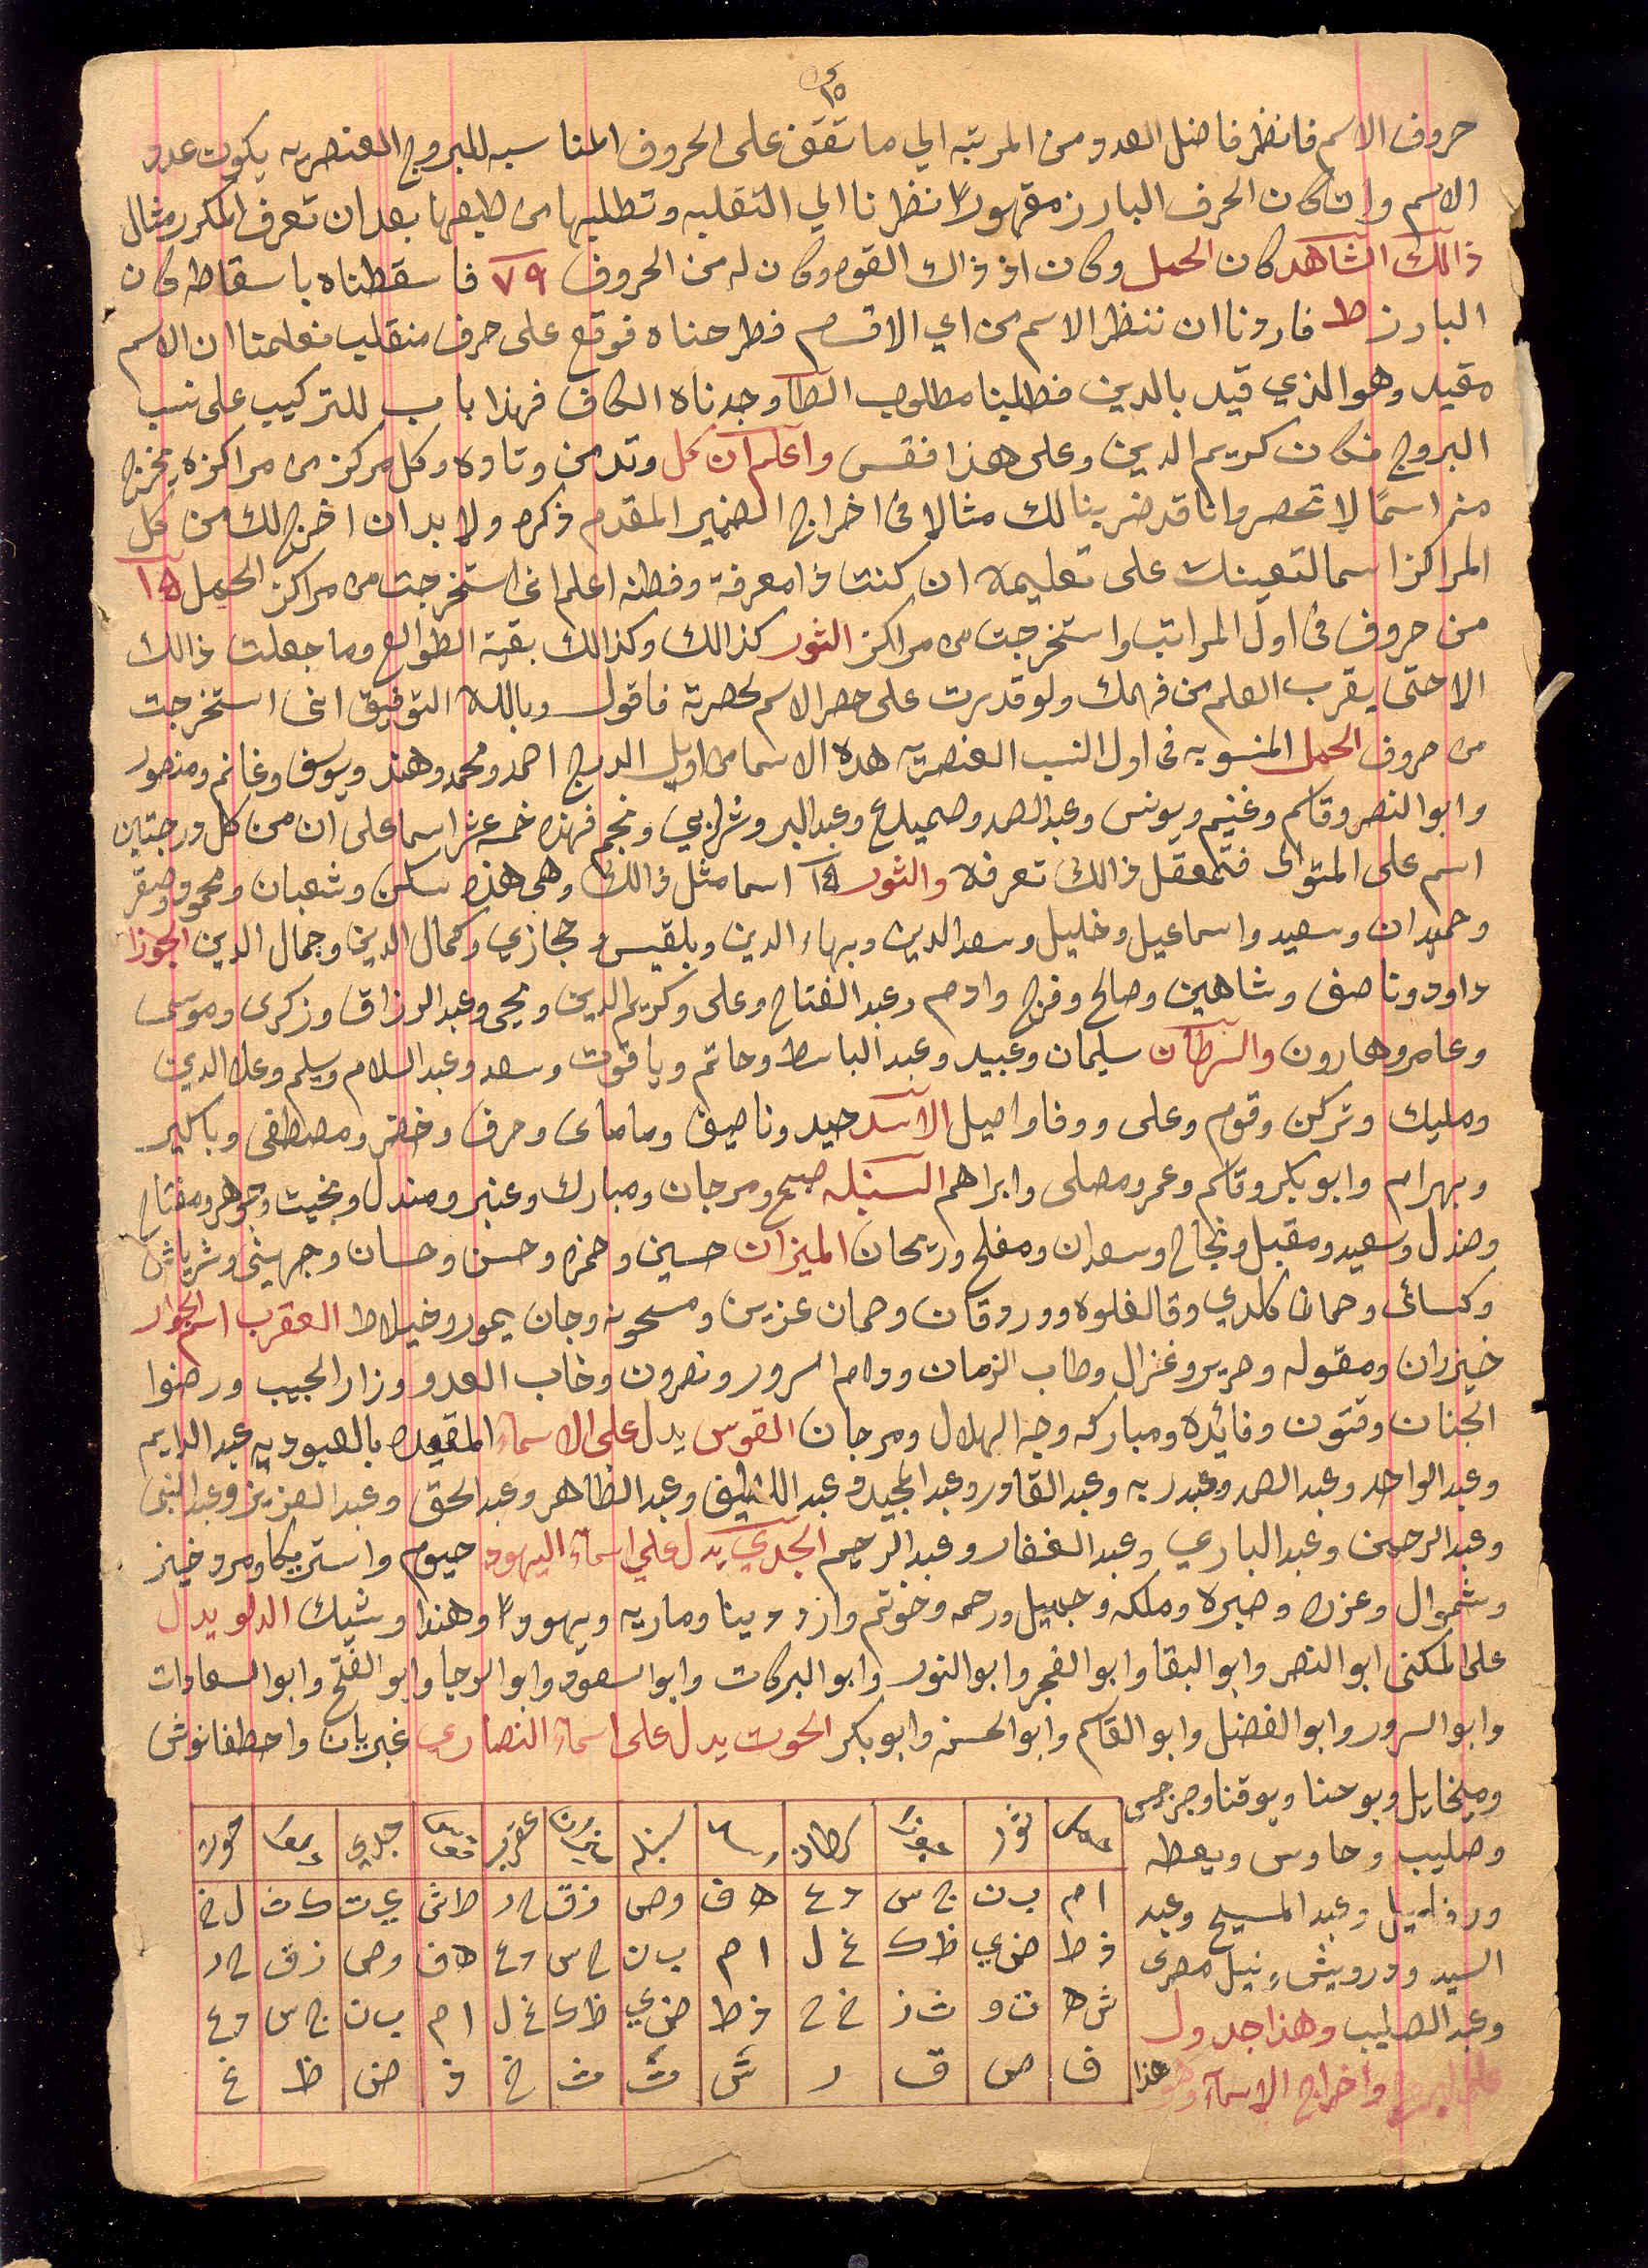 ١٥
حروف الاسم فانظر فاضل العدد من المرتبه الي ما تقف على الحروف المناسبه للبروج العنصريه يكون عدد
الاسم وان كان الحرف البارز مقهورًا نظرنا الي التقلبه وتطلبها من طبعها بعد ان تعرف المكرر مثال
ذالك الشاهد كان الحمل وكان اذ ذاك القوم وكان له من الحروف ٧٩ فاسقطناه باسقاطه كان
البارز ط فاردنا ان ننظر الاسم من اي الاقسام فطرحناه فوقع على حرف منقلب فعلمنا ان الاسم
مقيد وهو الذي قيد بالدين فطلبنا مطلوب الطا وجدناه الكاف فهذا باب للتركيب على نسب
البروج فكان كريم الدين وعلى هذا فقس واعلم ان كل وتد من وتاده وكل مركز من مراكزه يخرج
منه اسمًا لا تحصر وانا قد ضربنا لك مثالا في اخراج الضمير المقدم ذكره ولا بد ان اخرج لك من كل
المراكز اسما لتعينك على تعليمه ان كنت ذا معرفة وفطنه اعلم اني استخرجت من مراكز الحمل ١٥
من حروف في اول المراتب واستخرجت من مراكز الثور كذالك وكذالك بقية الطوالع وما جعلت ذالك
الا حتى يقرب العلم من فهمك ولو قدرت على حصر الاسم لحصرته فاقول وبالله التوفيق اني استخرجت
من حروف الحمل المنسوبه في اول النسب العنصريه هده الاسما من اوايل الدرج احمد ومحمد وهند ويوسف وغانم ومنصور
وابو النصر وقاسم وغنيم ويونس وعبد الصمد وصميلع وعبد البر وشرابي ونجم فهذه خمسة عشر اسما على ان من كل درجتين
اسم على المتوالى فتمعقل ذالك تعرفه والثور ١٤ اسما مثل ذالك وهي هذه سكن وشعبان ومحمود وصقر
وحميدان وسعيد واسماعيل وخليل وسعد الدين وبهاء الدين وبلقيس وحجازي وكمال الدين وجمال الدين الجوزا
داود وناصف وشاهين وصالح وفرج وادم وعبد الفتاح وعلى وكريم الدين ويحي وعبد الرزاق وزكرى وموسى
وعامر وهارون والسرطان سليمان وعبيد وعبد الباسط وحاتم وياقوت وسعد وعبد السلام وسليم وعلا الدين
ومليك وتركن وقوم وعلى ووفا واصيل الاسد حيد وناصيف وماماى وحرف وخضر ومصطفى وباكير
وبهرام وابو بكر وقاسم وعمر ومصلى وابراهم السنبله صبيح ومرجان ومبارك وعنبر ومندل وبخيت وجوهر ومفتاح
وصندل وسعيد ومقبل ونجاح وسعدان ومفلح وريحان الميزان حسين وحمزه وحسن وحسان وجهيني وشرباش
وكسائى وحمان كلدي وقالغلوه ووروقان وحمان عزين ومسحوبه وجان يمور وخيلاط العقرب اسم الجوار
خيزران ومقوله وحرير وغزال وطاب الزمان ودام السرور ونصرون وخاب العدو وزار الحبيب ورضوا
الجنان وفتون وفائده ومباركه وجه الهلال ومرجان القوس يدل على الاسماء المقيده بالعبوديه عبد الدايم
وعبد الواحد وعبد الصمد وعبد ربه وعبد القادر وعبد المجيد وعبد اللطيف وعبد الظاهر وعبد الحق وعبد العزيز وعبد النبى
وعبد الرحمن وعبد الباري وعبد الغفار وعبد الرحيم الجدي يدل علي اسماء اليهود حيوم واستربكا ومردخيز
وشموال وعزره وصبره وملكه وجميل ورحمه وخوتم وازددينا وماريه ويهودا وهندا وشبك الدلو يدل
على المكنى ابو النصر وابو البقا وابو الفجر وابو النور وابو البركات وابو السعود وابو الرجا وابو الفتح وابو السعادات
وابو السرور وابو الفضل وابو القاسم وابو الحسن وابو بكر الحوت يدل على اسماء النصارى غبريان واحطفانوش
وميخايل ويوحنا ويوقنا وجرجس
وصليب وحاوس ويعطه
ورفاييل وعبد المسيح وعبد
السيد ودرويش نيل مصرى
وعبد الصليب وهذا جدول
واخراج الاسماء وهو هذا
ثور سرطان سنبله عقرب جدي حوت
ام ب ن ج س د ع ه ف وص زق ح ر ط ش ي ت ك ث ل خ
ذ ط ض ي ظ ك غ ل ا م ب ن ج س د ع ه ف وص زق ح ر
ش ه ت و ث ز خ ح ذ ط ض ي ظ ك غ ل ا م ب ن ج س د ع
ف ص ق ر ش ت ث خ ذ ض ظ غ